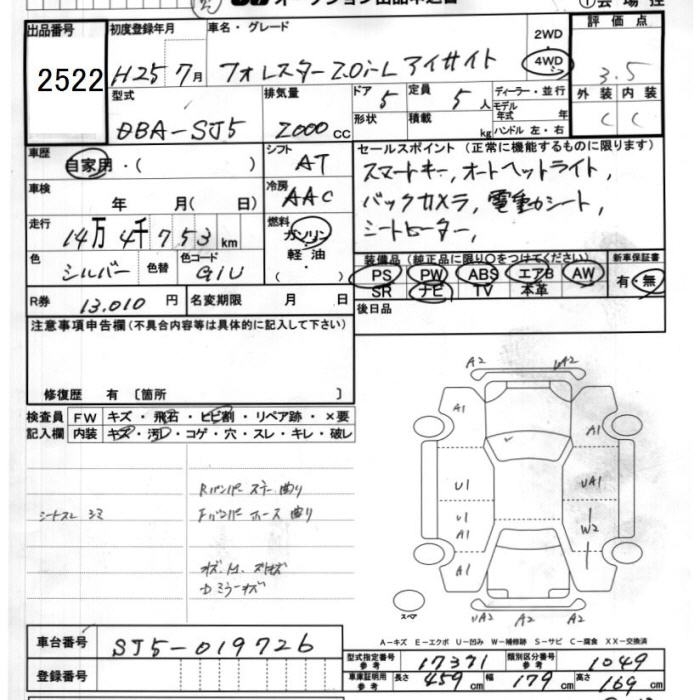 オークション出品申込書
① 会場控
出品番号 初度登録年月 車名・グレード 2WD 評価点
2522 H25 7月 フォレスター 2.0i-L アイサイト 4WD 3.5
型式 排気量 ドア 5 定員 5人 ディーラー・並行 外装 内装
モデル年式 年
DBA-SJ5 2000cc 形状 積載 kg ハンドル 左・右 C C
車歴 自家用・( ) シフト AT セールスポイント (正常に機能するものに限ります)
スマートキー, オートヘッドライト,
車検 年 月( 日) 冷房 AAC バックカメラ, 電動シート,
走行 14万4千753km 燃料 ガソリン・軽油・( ) シートヒーター,
色 シルバー 色替 色コード G1U
装備品 (純正品に限り○をつけてください) 新車保証書
PS PW ABS エアB AW 有・無
SR ナビ TV 本革
R券 13,010円 名変期限 月 日 後日品
注意事項申告欄 (不具合内容等は具体的に記入して下さい)
修復歴 有 〔箇所 〕
検査員 FW キズ・飛石・ヒビ割・リペア跡・×要
記入欄 内装 キズ・汚レ・コゲ・穴・スレ・キレ・破レ
シートスレ シミ
Rバンパー ステー曲り
Fバンパー ホース曲り
Dミラーキズ
A2 UA2
A1 A1
U1 UA1
U1 W2
A1
A1 A1
スペア
UA2 A2 A2
A-キズ E-エクボ U-凹み W-補修跡 S-サビ C-腐食 XX-交換済
車台番号 SJ5-019726
型式指定番号 参考 17371 類別区分番号 参考 1049
登録番号
車庫証明用 参考 長さ 459cm 幅 179cm 高さ 169cm